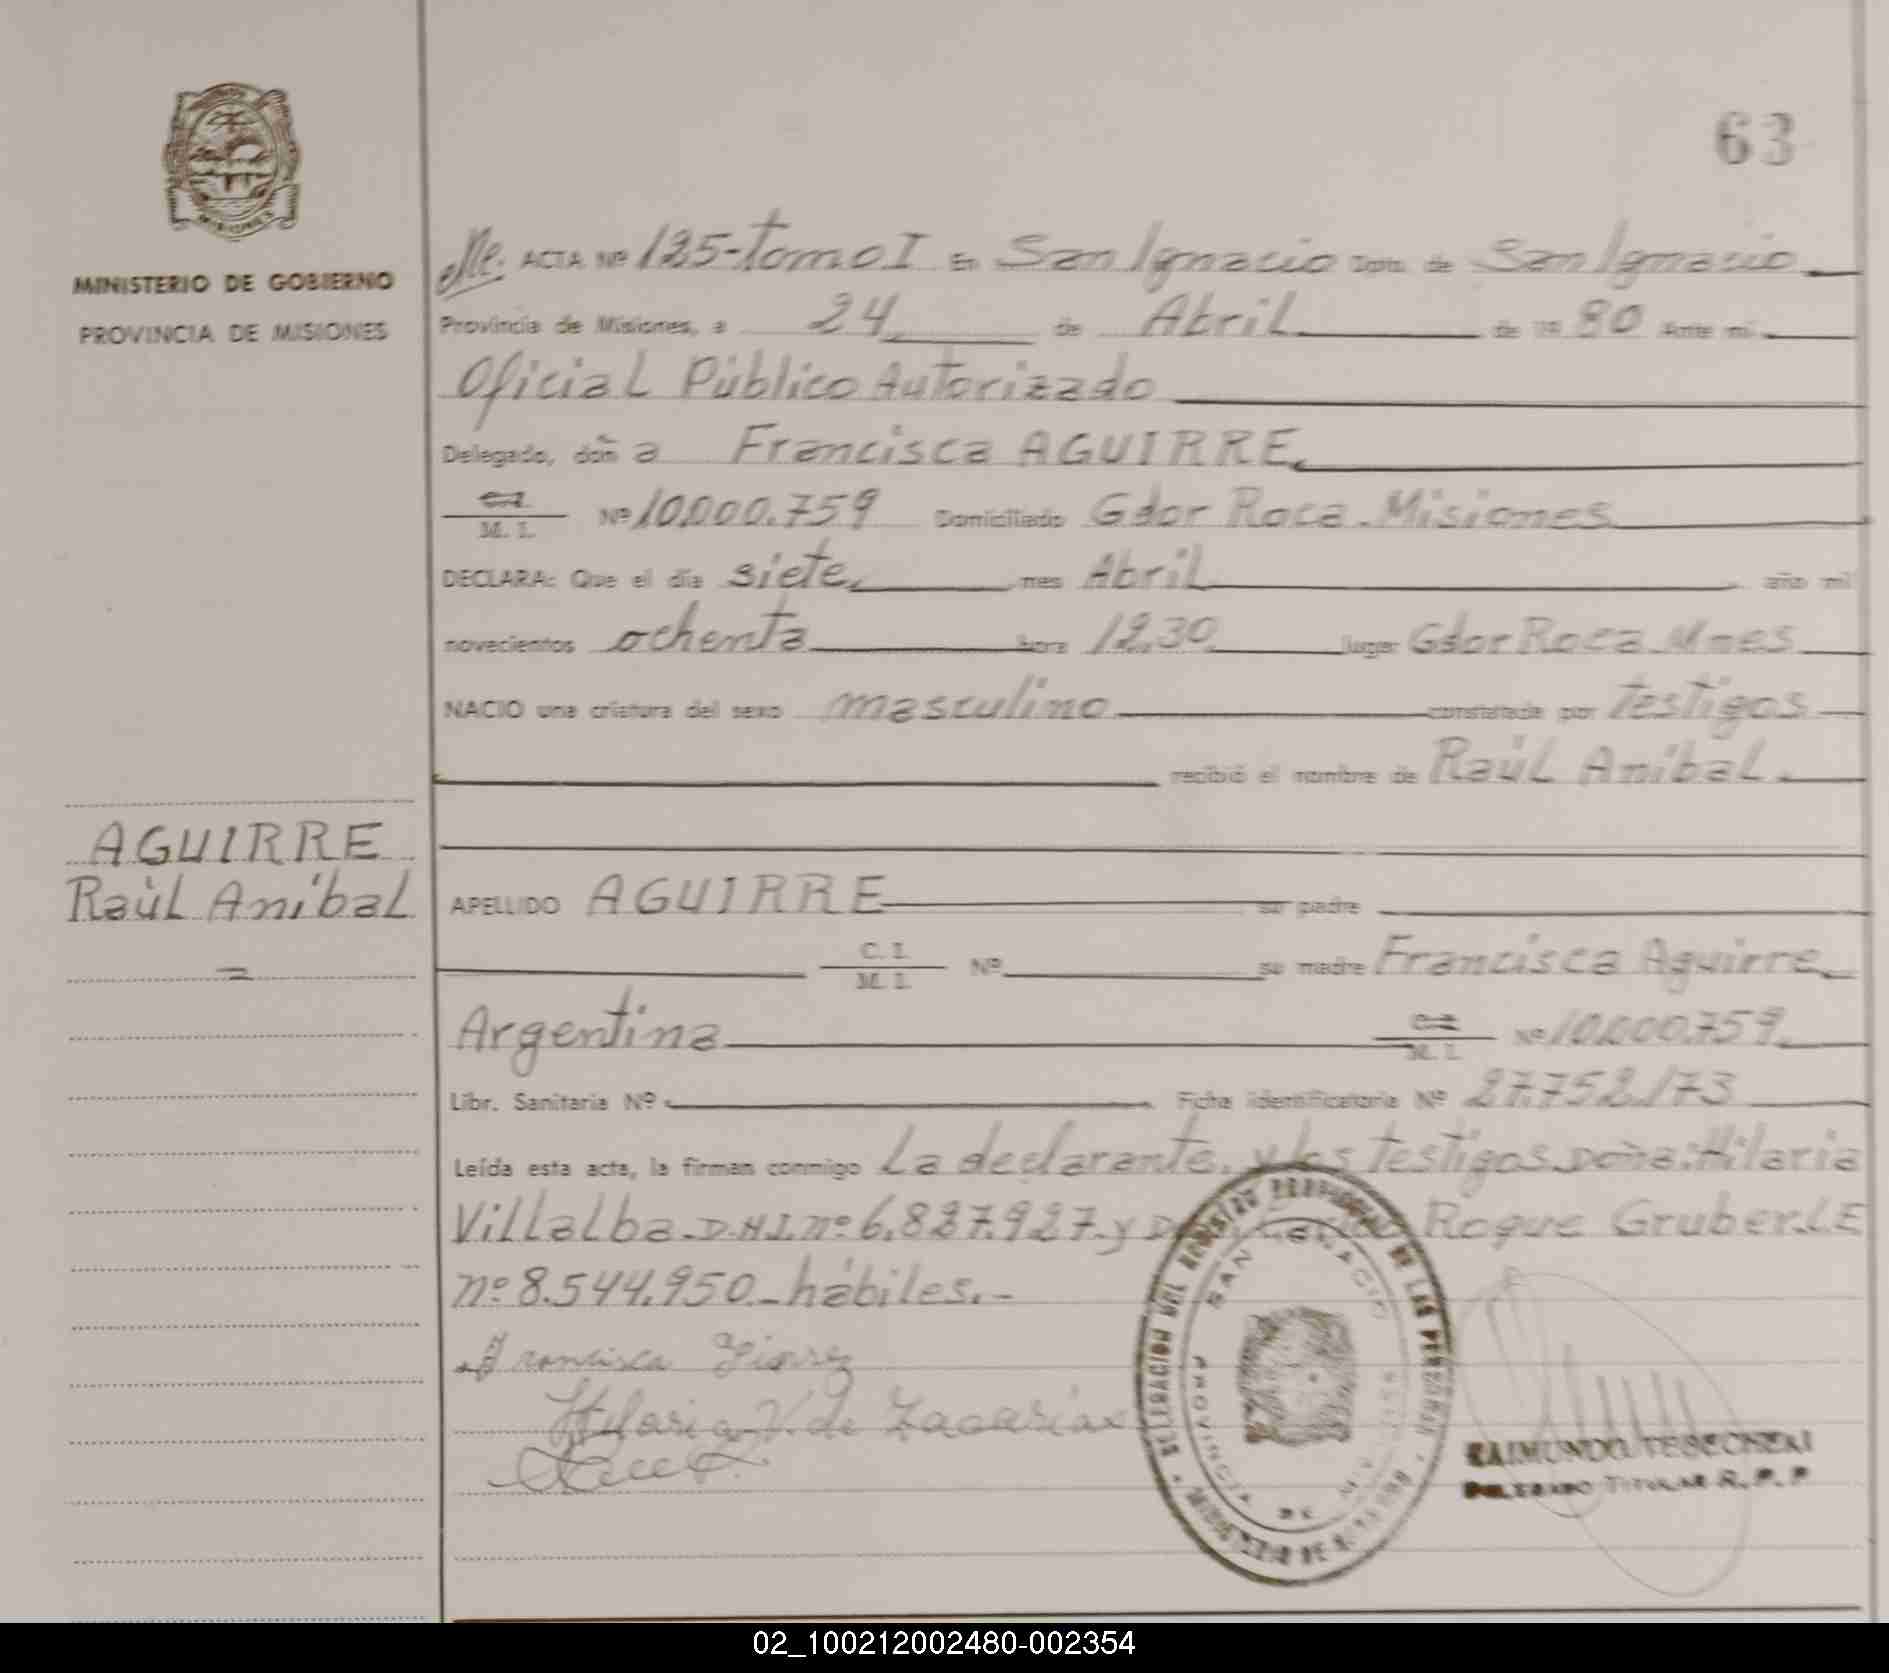 63
MINISTERIO DE GOBIERNO
PROVINCIA DE MISIONES
ACTA Nº 125-tomo I En San Ignacio Dpto. de San Ignacio
Provincia de Misiones, a 24 de Abril de 19 80 Ante mi
Oficial Público Autorizado
Delegado, doñ a Francisca AGUIRRE
M. I. Nº 10.000.759 Domiciliado Gdor Roca. Misiones
DECLARA: Que el día siete mes Abril año mil
novecientos ochenta hora 12,30 lugar Gdor Roca. Mnes
NACIO una criatura del sexo masculino constatada por testigos
recibió el nombre de Raúl Aníbal.
AGUIRRE
Raúl Aníbal
APELLIDO AGUIRRE su padre
C. I.
M. I. Nº su madre Francisca Aguirre
Argentina M. I. Nº 10.000.759
Libr. Sanitaria Nº Ficha identificatoria Nº 27.752/73
Leída esta acta, la firman conmigo La declarante, y los testigos doña: Hilaria
Villalba. D.N.I. nº 6.827.927. y Roque Gruber. L E
nº 8.544.950 - hábiles. -
Francisca
Hilaria V. de Zacarías
DELEGACION DEL REGISTRO PROVINCIAL DE LAS PERSONAS
SAN IGNACIO
PROVINCIA DE MISIONES
MINISTERIO DE GOBIERNO
RAIMUNDO
DELEGADO TITULAR R. P. P
02_100212002480-002354